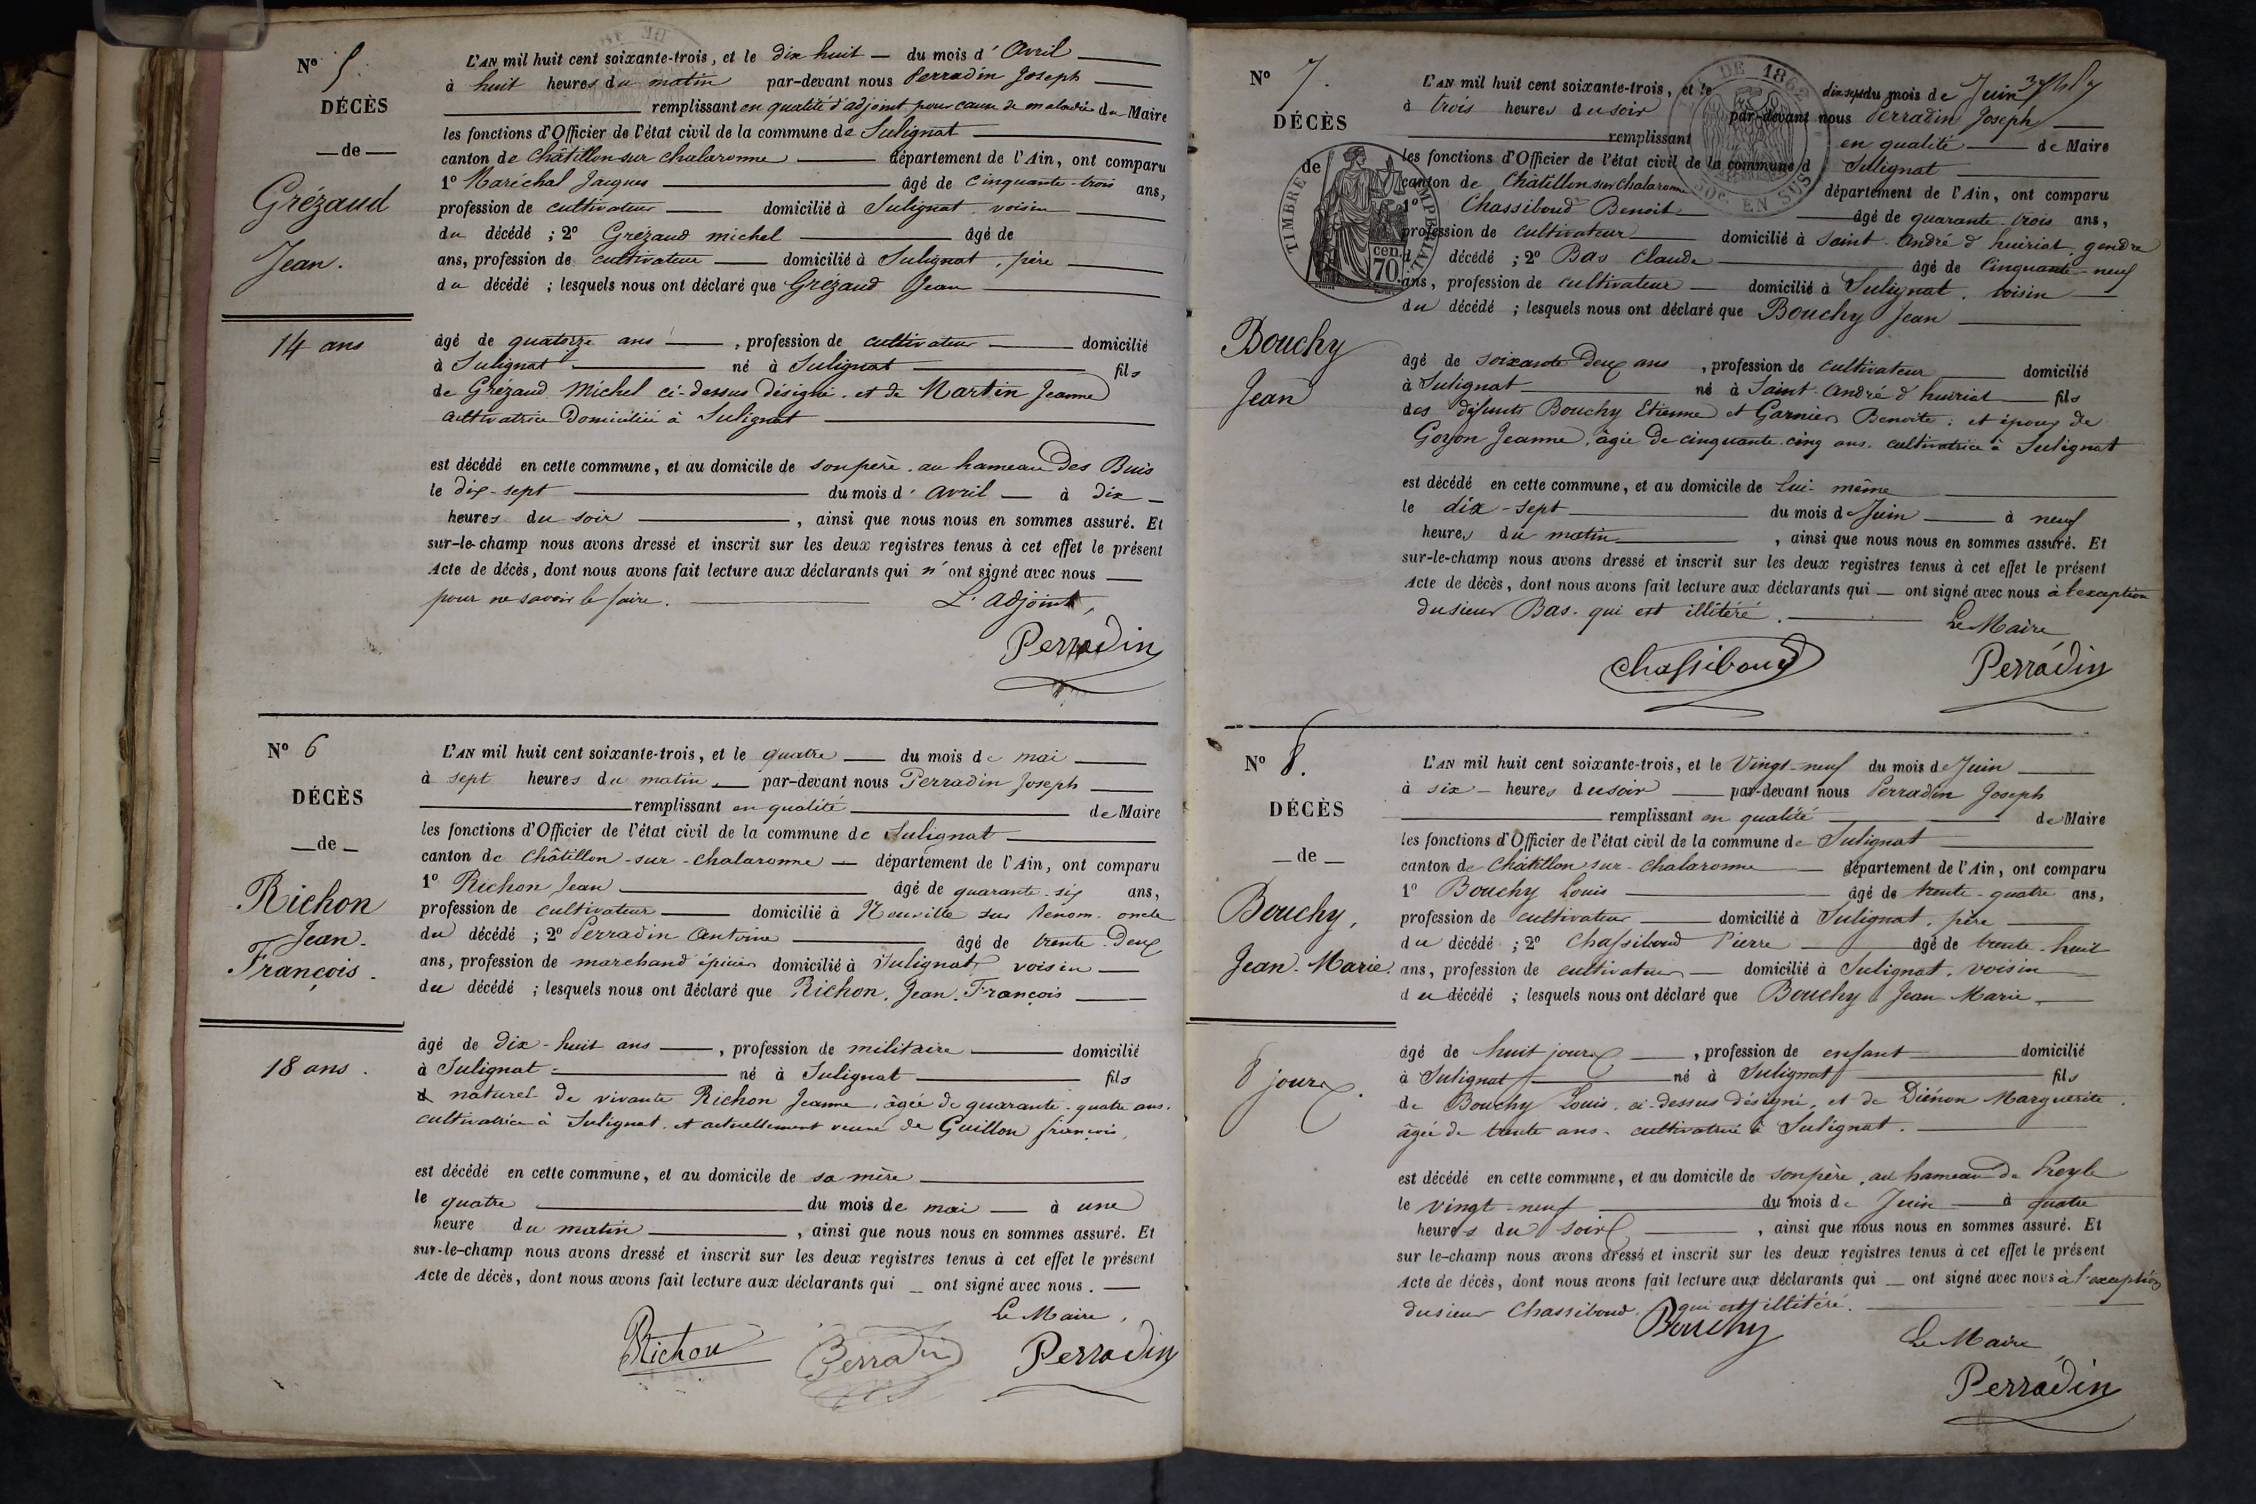 Nº 5.
DÉCÈS
de
Grézaud
Jean.
14 ans
L'AN mil huit cent soixante-trois, et le dix huit du mois d'Avril
à huit heures du matin par-devant nous Perradin Joseph
remplissant en qualité d'adjoint pour cause de maladie du Maire
les fonctions d'Officier de l'état civil de la commune de Sulignat
canton de Châtillon sur chalaronne département de l'Ain, ont comparu
1º Maréchal Jacques âgé de cinquante-trois ans,
profession de cultivateur domicilié à Sulignat voisin
du décédé ; 2º Grézaud michel âgé de
ans, profession de cultivateur domicilié à Sulignat, père
du décédé ; lesquels nous ont déclaré que Grézaud Jean
âgé de quatorze ans, profession de cultivateur domicilié
à Sulignat né à Sulignat fils
de Grézaud Michel ci-dessus désigné. et de Martin Jeanne
cultivatrice Domiciliée à Sulignat
est décédé en cette commune, et au domicile de son père. au hameau des Buis
le dix-sept du mois d'avril à dix
heures du soir, ainsi que nous nous en sommes assuré. Et
sur-le-champ nous avons dressé et inscrit sur les deux registres tenus à cet effet le présent
Acte de décès, dont nous avons fait lecture aux déclarants qui n'ont signé avec nous
pour ne savoir le faire. L'adjoint,
Perradin
Nº 6
DÉCÈS
de
Richon
Jean-
François.
18 ans.
L'AN mil huit cent soixante-trois, et le quatre du mois de mai
à sept heures du matin par-devant nous Perradin Joseph
remplissant en qualité de Maire
les fonctions d'Officier de l'état civil de la commune de Sulignat
canton de Châtillon-sur-chalaronne département de l'Ain, ont comparu
1º Richon Jean âgé de quarante-six ans,
profession de cultivateur domicilié à Neuville sur Renom. oncle
du décédé ; 2º Perradin Antoine âgé de trente-deux
ans, profession de marchand épicier domicilié à Sulignat voisin
du décédé ; lesquels nous ont déclaré que Richon, Jean-François
âgé de dix-huit ans, profession de militaire domicilié
à Sulignat né à Sulignat fils
naturel de vivante Richon Jeanne, âgée de quarante-quatre ans.
cultivatrice à Sulignat, et actuellement veuve de Guillon françois,
est décédé en cette commune, et au domicile de sa mère
le quatre du mois de mai à une
heure du matin, ainsi que nous nous en sommes assuré. Et
sur-le-champ nous avons dressé et inscrit sur les deux registres tenus à cet effet le présent
Acte de décès, dont nous avons fait lecture aux déclarants qui ont signé avec nous.
Le Maire,
Richon Perradin Perradin
Nº 7.
DÉCÈS
de
TIMBRE IMPÉRIAL
70 cen.
Bouchy
Jean
L'AN mil huit cent soixante-trois, et le dix sept du mois de Juin
à trois heures du soir par-devant nous Perradin Joseph
remplissant en qualité de Maire
les fonctions d'Officier de l'état civil de la commune d Sulignat
canton de Châtillon sur Chalaronne département de l'Ain, ont comparu
1º Chassiboud Benoit âgé de quarante-trois ans,
profession de cultivateur domicilié à saint-André d'huiriat gendre
d décédé ; 2º Bas Claude âgé de cinquante-neuf
ans, profession de cultivateur domicilié à Sulignat, voisin
du décédé ; lesquels nous ont déclaré que Bouchy Jean
âgé de soixante deux ans, profession de cultivateur domicilié
à Sulignat né à Saint-André d'huiriat fils
des défunts Bouchy Etienne et Garnier Benoite ; et époux de
Goyon Jeanne, âgée de cinquante-cinq ans. cultivatrice à Sulignat
est décédé en cette commune, et au domicile de Lui-même
le dix-sept du mois de Juin à neuf
heures du matin, ainsi que nous nous en sommes assuré. Et
sur-le-champ nous avons dressé et inscrit sur les deux registres tenus à cet effet le présent
Acte de décès, dont nous avons fait lecture aux déclarants qui ont signé avec nous à l'exception
du sieur Bas. qui est illitéré. Le Maire
Chassiboud Perradin
Nº 8.
DÉCÈS
de
Bouchy,
Jean-Marie.
8 jours.
L'AN mil huit cent soixante-trois, et le Vingt-neuf du mois de Juin
à six heures du soir par-devant nous Perradin Joseph
remplissant en qualité de Maire
les fonctions d'Officier de l'état civil de la commune de Sulignat
canton de Châtillon sur-Chalaronne département de l'Ain, ont comparu
1º Bouchy Louis âgé de trente-quatre ans,
profession de cultivateur domicilié à Sulignat, père
du décédé ; 2º Chassiboud Pierre âgé de trente-huit
ans, profession de cultivateur domicilié à Sulignat, voisin
du décédé ; lesquels nous ont déclaré que Bouchy Jean-Marie
âgé de huit jours, profession de enfant domicilié
à Sulignat né à Sulignat fils
de Bouchy Louis, ci-dessus désigné, et de Diénon Marguerite.
âgée de trente ans. cultivatrice à Sulignat.
est décédé en cette commune, et au domicile de son père, au hameau de
le vingt-neuf du mois de Juin à quatre
heures du soir, ainsi que nous nous en sommes assuré. Et
sur le-champ nous avons dressé et inscrit sur les deux registres tenus à cet effet le présent
Acte de décès, dont nous avons fait lecture aux déclarants qui ont signé avec nous à l'exception
du sieur Chassiboud. qui est illitéré.
Bouchy Le Maire
Perradin